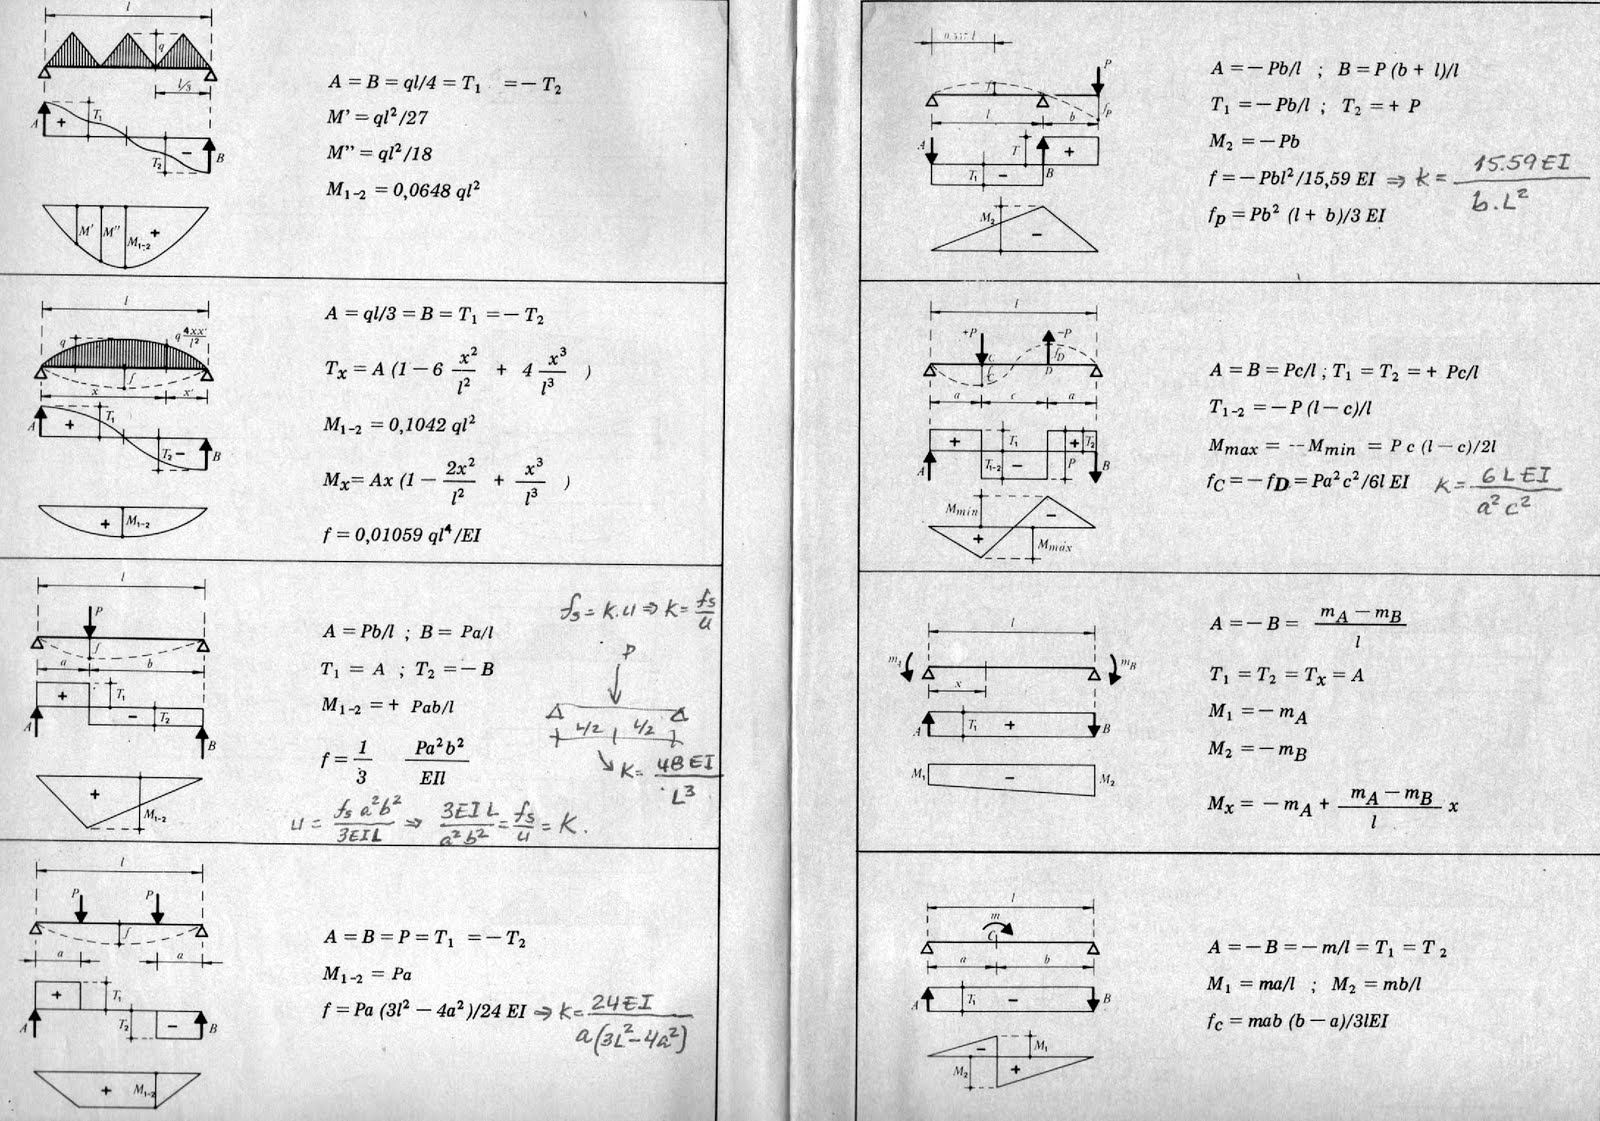 l
q
l/3
A
+
T₁
T₂
−
B
M'
M''
M₁₋₂
+
A = B = ql/4 = T₁ = − T₂
M' = ql²/27
M'' = ql²/18
M₁₋₂ = 0,0648 ql²
l
q
q 4xx'/l²
f
x
x'
A
+
T₁
T₂
−
B
+
M₁₋₂
A = ql/3 = B = T₁ = − T₂
Tₓ = A (1 − 6 x²/l² + 4 x³/l³ )
M₁₋₂ = 0,1042 ql²
Mₓ = Ax (1 − 2x²/l² + x³/l³ )
f = 0,01059 ql⁴/EI
l
P
f
a
b
+
T₁
−
T₂
A
B
+
M₁₋₂
A = Pb/l ; B = Pa/l
T₁ = A ; T₂ = − B
M₁₋₂ = + Pab/l
f = 1/3 Pa²b²/EIl
fs = K.u ⇒ K = fs/u
P
L/2 L/2
K = 48EI/L³
u = fs a²b²/3EIL ⇒ 3EIL/a²b² = fs/u = K.
l
P
P
f
a
a
+
T₁
T₂
−
A
B
+
M₁₋₂
A = B = P = T₁ = − T₂
M₁₋₂ = Pa
f = Pa (3l² − 4a²)/24 EI ⇒ K = 24EI/a(3L²−4a²)
0,577 l
P
f
fp
l
b
A
T
+
T₁
−
B
M₂
−
A = − Pb/l ; B = P (b + l)/l
T₁ = − Pb/l ; T₂ = + P
M₂ = − Pb
f = − Pbl²/15,59 EI ⇒ K = 15.59EI/b.L²
fp = Pb² (l + b)/3 EI
l
+P
−P
C
fC
fD
D
a
c
a
+
T₁
+
T₂
T₁₋₂
−
P
A
B
Mmín
−
+
Mmáx
A = B = Pc/l ; T₁ = T₂ = + Pc/l
T₁₋₂ = − P (l − c)/l
Mmax = −Mmin = P c (l − c)/2l
fC = − fD = Pa²c²/6l EI K = 6LEI/a²c²
l
mA
mB
x
A
T₁
+
B
M₁
−
M₂
A = − B = mA − mB/l
T₁ = T₂ = Tₓ = A
M₁ = − mA
M₂ = − mB
Mₓ = − mA + mA − mB/l x
l
m
C
a
b
A
T₁
−
B
−
M₁
M₂
+
A = − B = − m/l = T₁ = T₂
M₁ = ma/l ; M₂ = mb/l
fC = mab (b − a)/3lEI